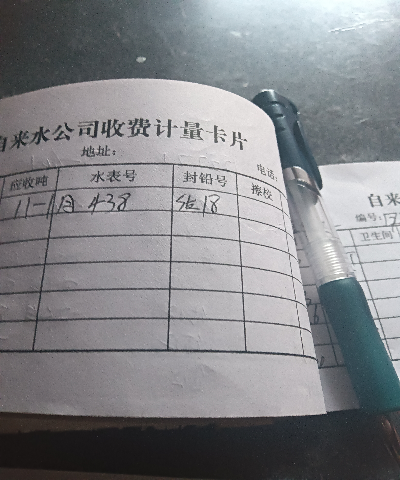 自来水公司收费计量卡片
地址：
电话：
应收吨 水表号 封铅号 擦校
11-1月 438 18
自来
编号：
卫生间